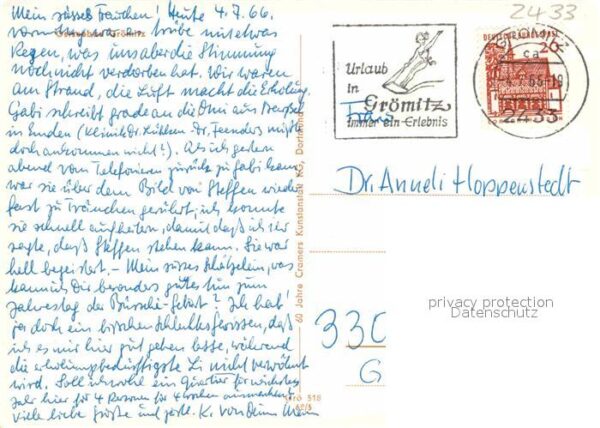 Mein süsses Frauchen! Heute 4.7.66.
Regen, was uns aber die Stimmung
noch nicht verdorben hat. Wir waren
am Strand, die Luft macht die Erholung.
Gabi schreibt grade an die Omi aus
in Emden
doch ankommen nicht?). Als ich gestern
abend vom Telefonieren zurück zu Gabi kam,
war sie über dem Bild von Steffen wieder
fast zu Tränchen gerührt, ich konnte
sie schnell aufheitern, damit daß ich ihr
sagte, daß Steffen stehen kann. Sie war
hell begeistert. - Mein süsses Schätzelein, was
kann ich Dir besonders gutes tun zum
Jahrestag der Geburt? Ich hab'
ja doch ein bisschen schlechtes Gewissen, daß
ich es mir hier gut gehen lasse, während
die erholungsbedürftigste Li nicht verwöhnt
wird. Soll ich wohl ein Quartier für nächstes
Jahr hier für 4 Personen für 4 Wochen ausmachen?
Viele liebe Grüße und K. von Deinem Mann
Grömitz
60 Jahre Cramers Kunstanstalt KG, Dortmund
Grö 518
2433
Urlaub
in
Grömitz
immer ein Erlebnis
DEUTSCHE BUNDESPOST
20
2433
Frau
Dr. Anneli Hoppenstedt
privacy protection
Datenschutz
330
G